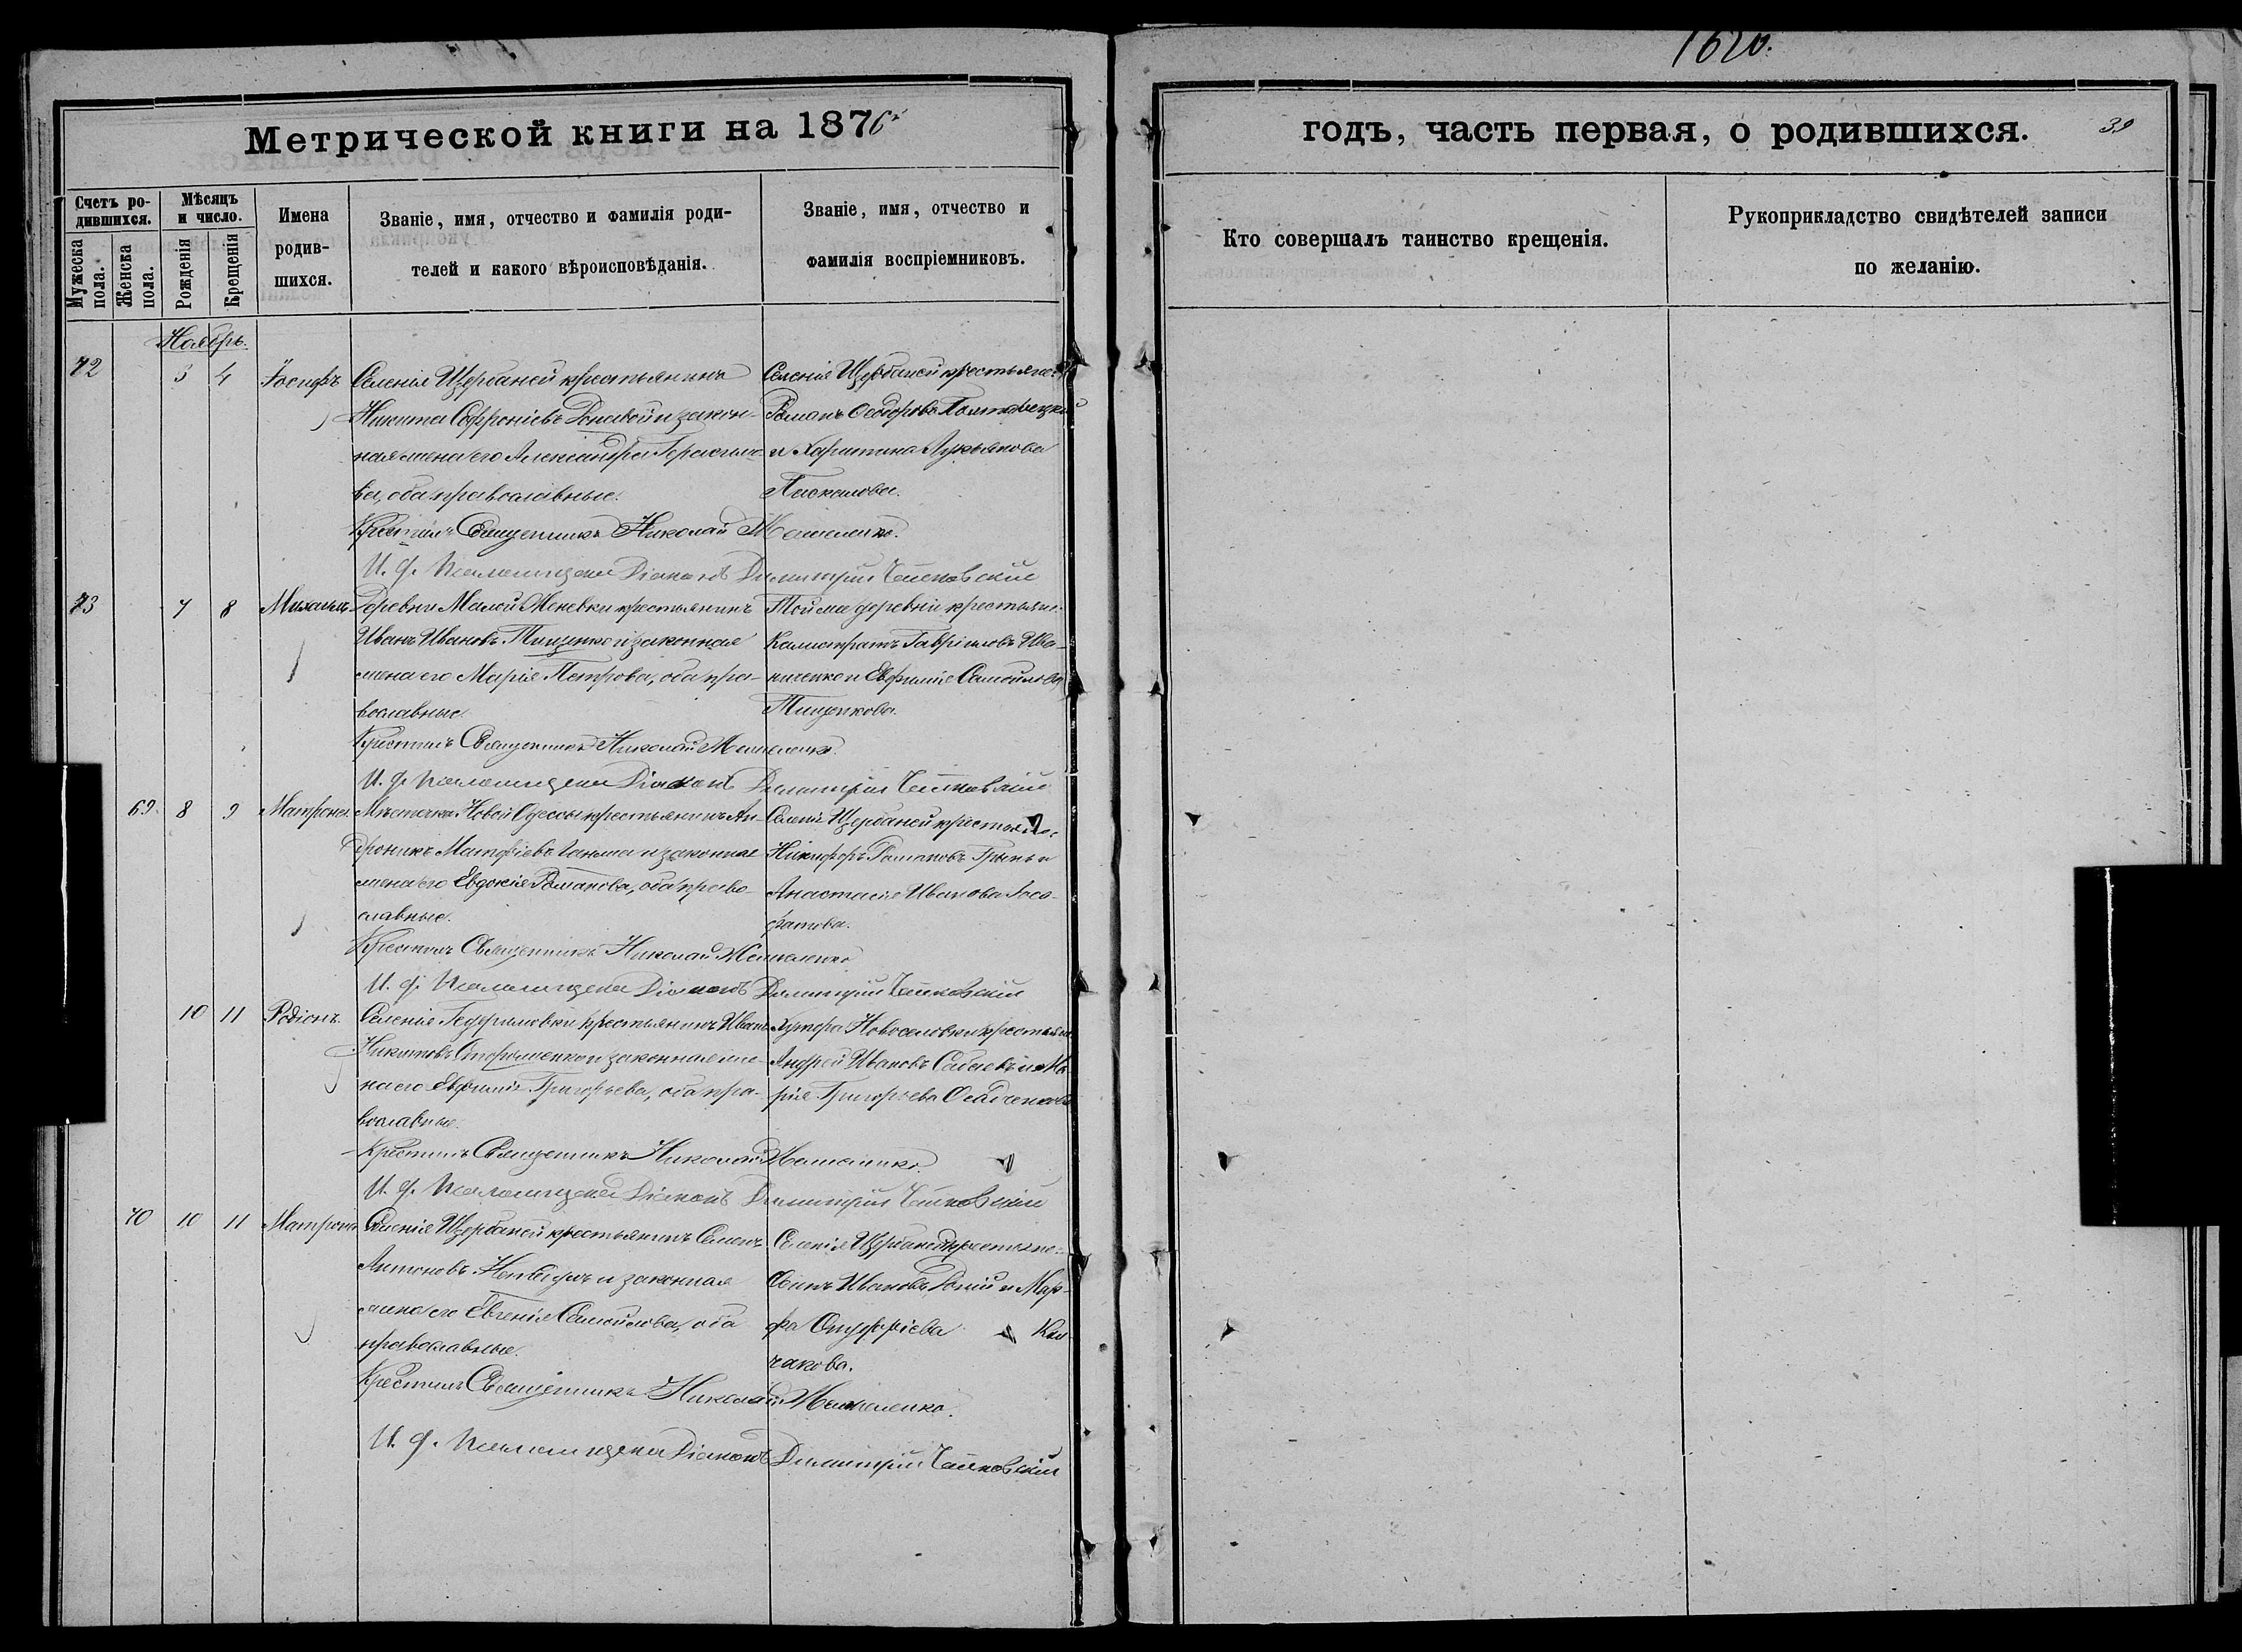 1620.
Метрической книги на 1876
годъ, часть первая, о родившихся.
39
Счетъ ро-
дившихся.
Мужеска
пола.
Женска
пола.
Мѣсяцъ
и число.
Рожденія
Крещенія
Имена
родив-
шихся.
Званіе, имя, отчество и фамилія роди-
телей и какого вѣроисповѣданія.
Званіе, имя, отчество и
фамилія воспріемниковъ.
Кто совершалъ таинство крещенія.
Рукоприкладство свидѣтелей записи
по желанію.
Ноябрь.
72
3 4
Іосифъ
Селенія Щербаней крестьянинъ
Никита Софроніевъ и закон-
ная жена его Александра Герасимо-
ва, оба православные.
Селенія Щербаней крестьяне:
Романъ Ѳедоровъ Полтавецкій
и Харитина Лукьянова
Паскалова.
Крестилъ Священникъ Николай
И. д. Псаломщика Діаконъ Димитрій
73
7 8
Михаилъ
Деревни Малой крестьянинъ
Иванъ Ивановъ Тищенко и законная
жена его Марія Петрова, оба пра-
вославные.
Той же деревни крестьяне:
Калистратъ Гавріиловъ Ива-
ниченко и Евфимія Самойлова
Тищенкова.
Крестилъ Священникъ Николай
И. д. Псаломщика Діаконъ Димитрій
69.
8 9
Матрона.
Мѣстечка Новой Одессы крестьянинъ Ан-
дроникъ Матфіевъ и законная
жена его Евдокія Романова, оба право-
славные.
Селенія Щербаней крестьяне:
Никифоръ Романовъ Грынь и
Анастасія Иванова Іоса-
фатова.
Крестилъ Священникъ Николай
И. д. Псаломщика Діаконъ Димитрій
10 11
Родіонъ.
Селенія крестьянинъ Иванъ
Никитовъ и законная же-
на его Евфимія Григорьева, оба пра-
вославные.
Хутора Новоселовки крестьяне
Андрей Ивановъ и Ма-
рія Григорьева
Крестилъ Священникъ Николай
И. д. Псаломщика Діаконъ Димитрій
70
10 11
Матрона
Селенія Щербаней крестьянинъ Семенъ
Антоновъ и законная
жена его Евгенія Самойлова, оба
православные.
Селенія Щербаней крестьяне:
Ивановъ и Мар-
фа Онуфріева Кол-
чакова.
Крестилъ Священникъ Николай
И. д. Псаломщика Діаконъ Димитрій